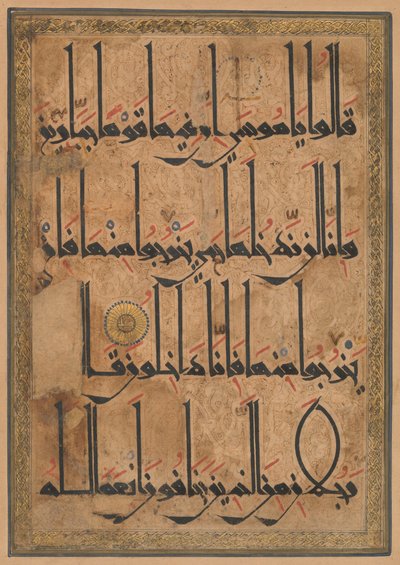 قالوا ياموسى إن فيها قوما جبارين
وإنا لن ندخلها حتى يخرجوا منها فإن
يخرجوا منها فإنا داخلون قال
رجلان من الذين يخافون أنعم الله